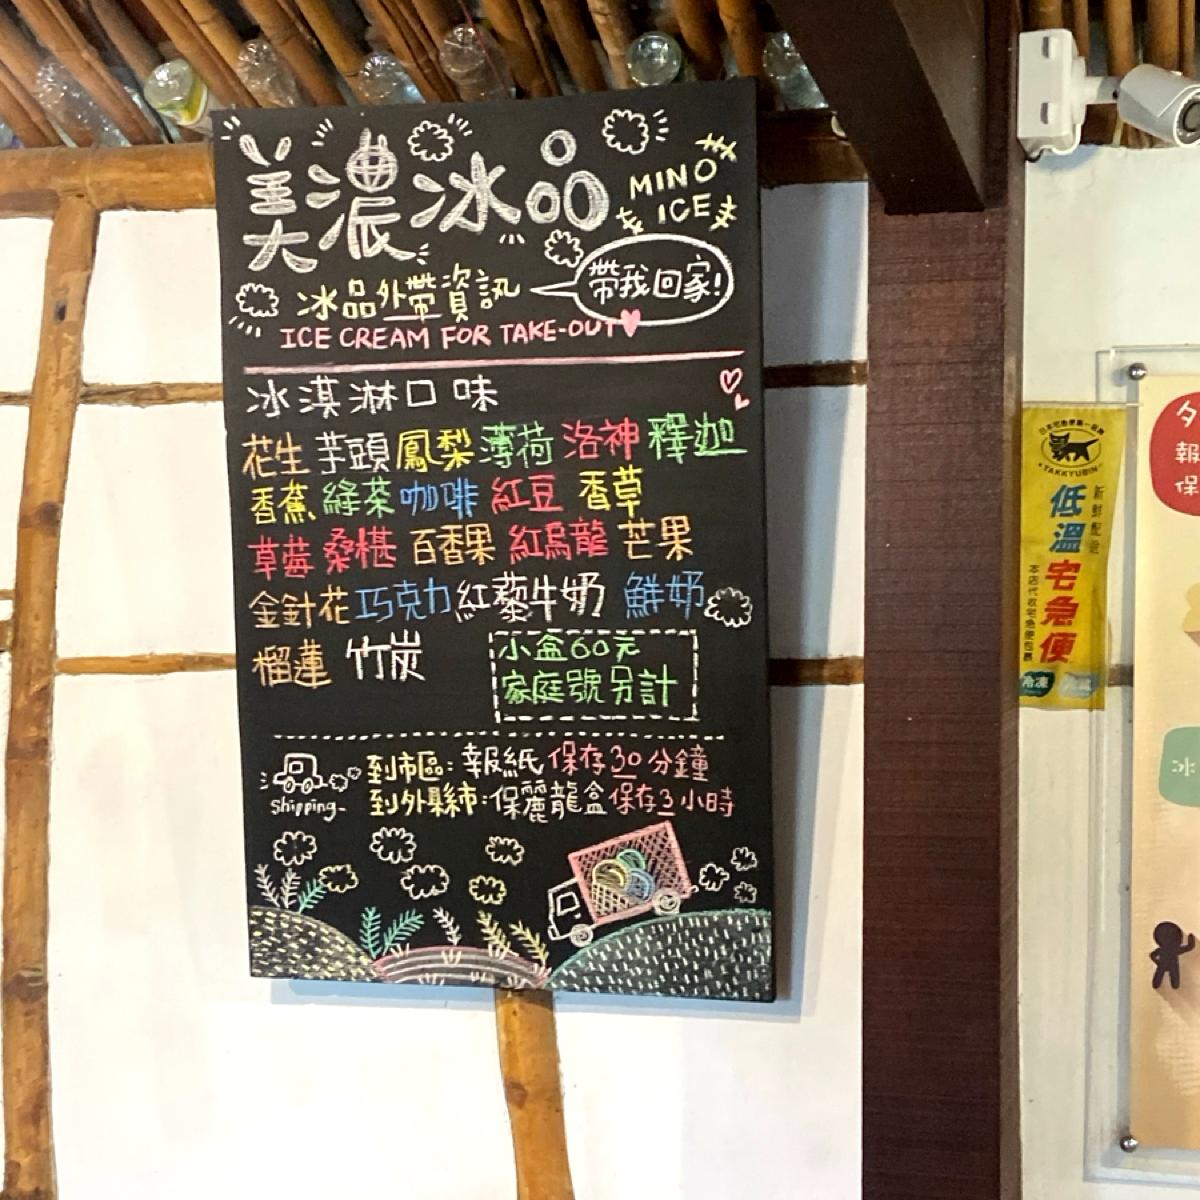 美濃冰品
MINO ICE
冰品外帶資訊
帶我回家!
ICE CREAM FOR TAKE-OUT
冰淇淋口味
花生 芋頭 鳳梨 薄荷 洛神 釋迦
香蕉 綠茶 咖啡 紅豆 香草
草莓 桑椹 百香果 紅烏龍 芒果
金針花 巧克力 紅藜牛奶 鮮奶
榴蓮 竹炭
小盒60元
家庭號另計
到市區:報紙 保存30分鐘
Shipping~
到外縣市:保麗龍盒 保存3小時
TAKKYUBIN
低溫宅急便
新鮮配送
本店代收宅急便包裹
冷凍
夕
報
保
冰